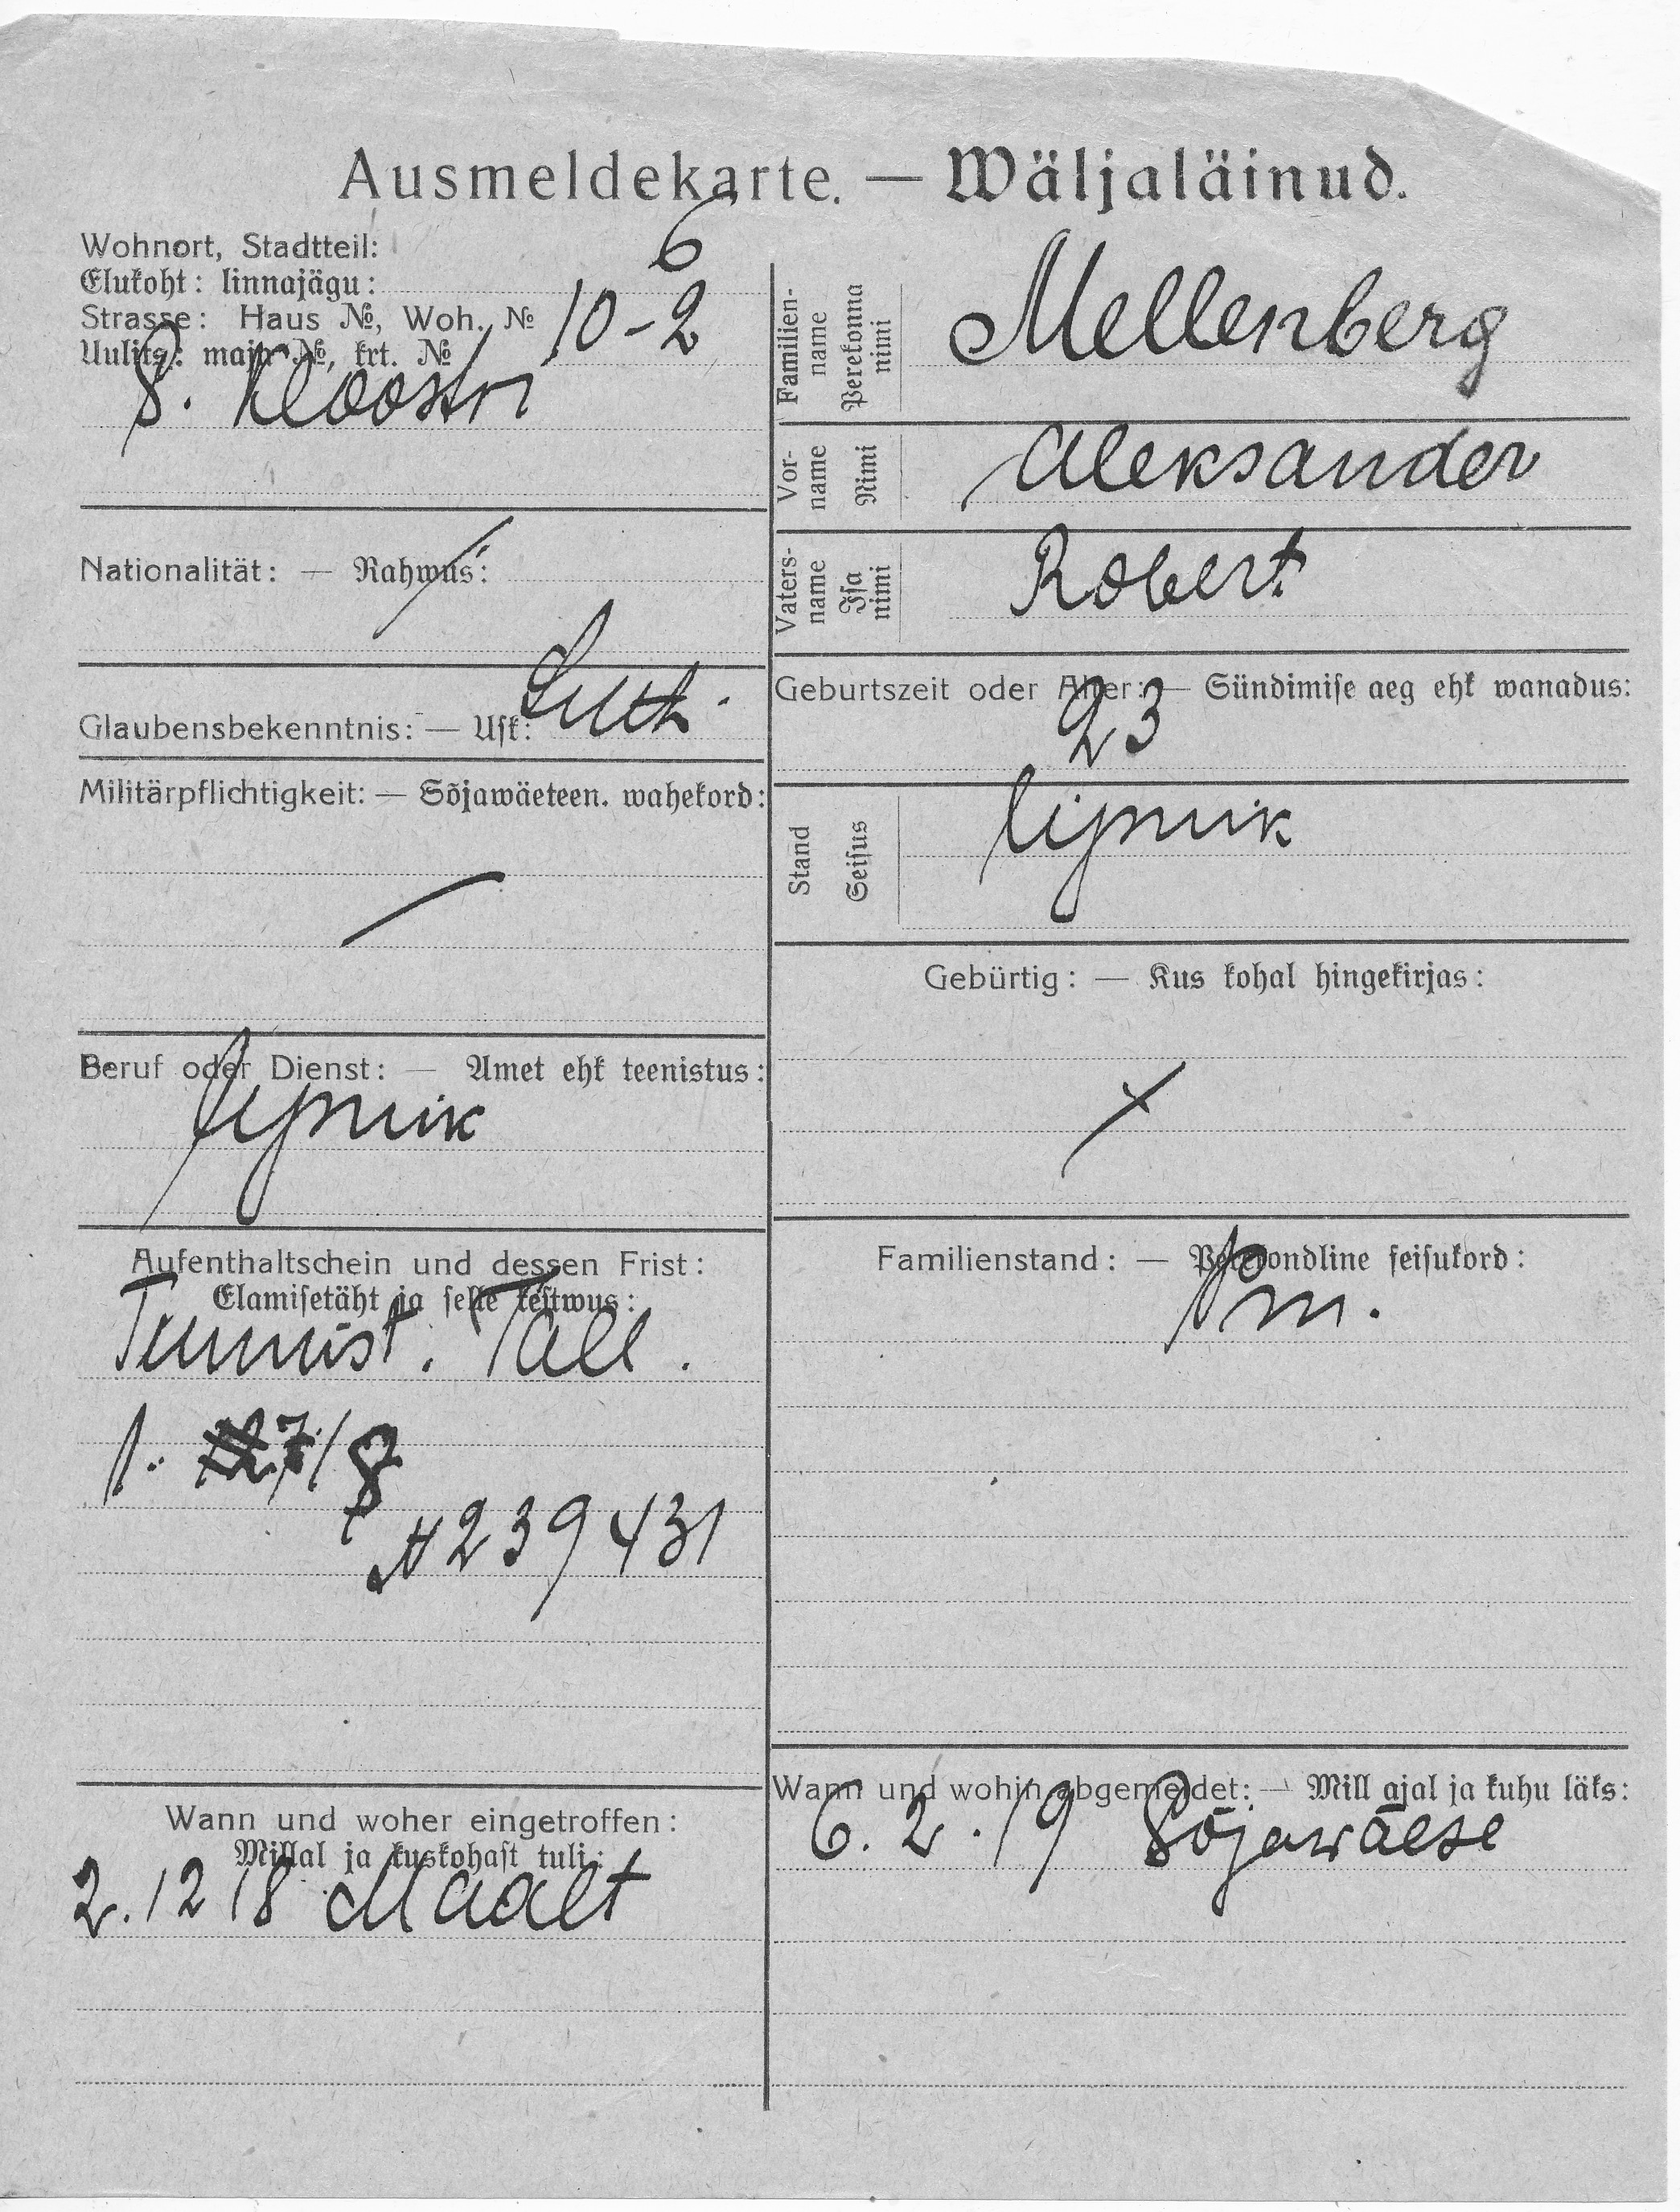 Ausmeldekarte. — Wäljaläinud.
Wohnort, Stadtteil:
6
Elukoht: linnajägu:
Strasse: Haus №, Woh. №
Uulits: maja №, krt. №
10-2
S. Kloostri
Nationalität: — Rahwus:
Glaubensbekenntnis: — Usk: Luth.
Militärpflichtigkeit: — Sõjawäeteen. wahekord:
Beruf oder Dienst: — Amet ehk teenistus:
Aufenthaltschein und dessen Frist:
Elamisetäht ja selle kestwus:
Tunnist. Tall.
N 239431
Wann und woher eingetroffen:
Millal ja kuskohast tuli:
2.12 18 Maalt
Familien-
name
Perekonna
nimi
Mellenberg
Vor-
name
Nimi
Aleksander
Vaters-
name
Isa
nimi
Robert
Geburtszeit oder Alter: — Sündimise aeg ehk wanadus:
23
Stand
Seisus
Gebürtig: — Kus kohal hingekirjas:
Familienstand: — Perekondline seisukord:
Wann und wohin abgemeldet: — Mill ajal ja kuhu läks:
6.2.19 Sõjawäese